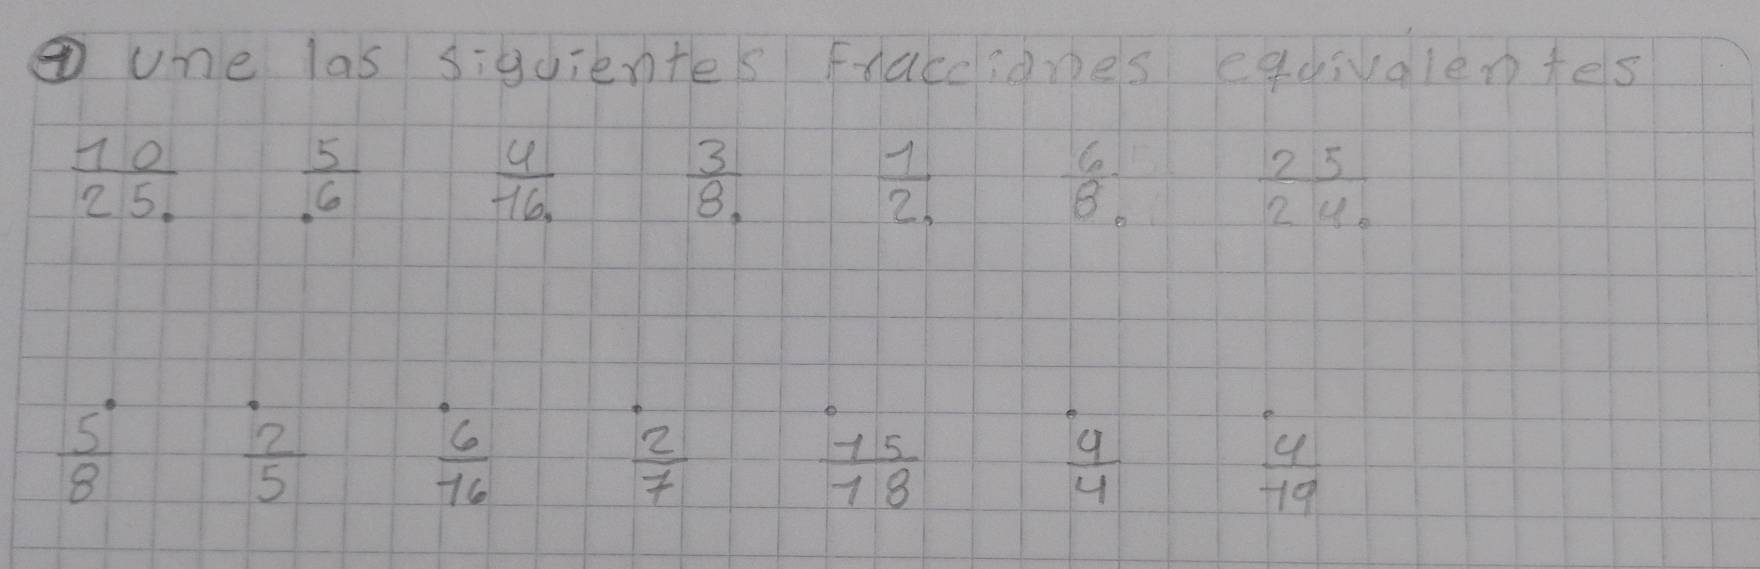 ① une las siguientes Fracciones equivalentes
10/25. 5/.6 4/16. 3/8. 1/2. 6/8. 25/24.
5/8 2/5 6/16 2/7 15/18 9/4 4/19